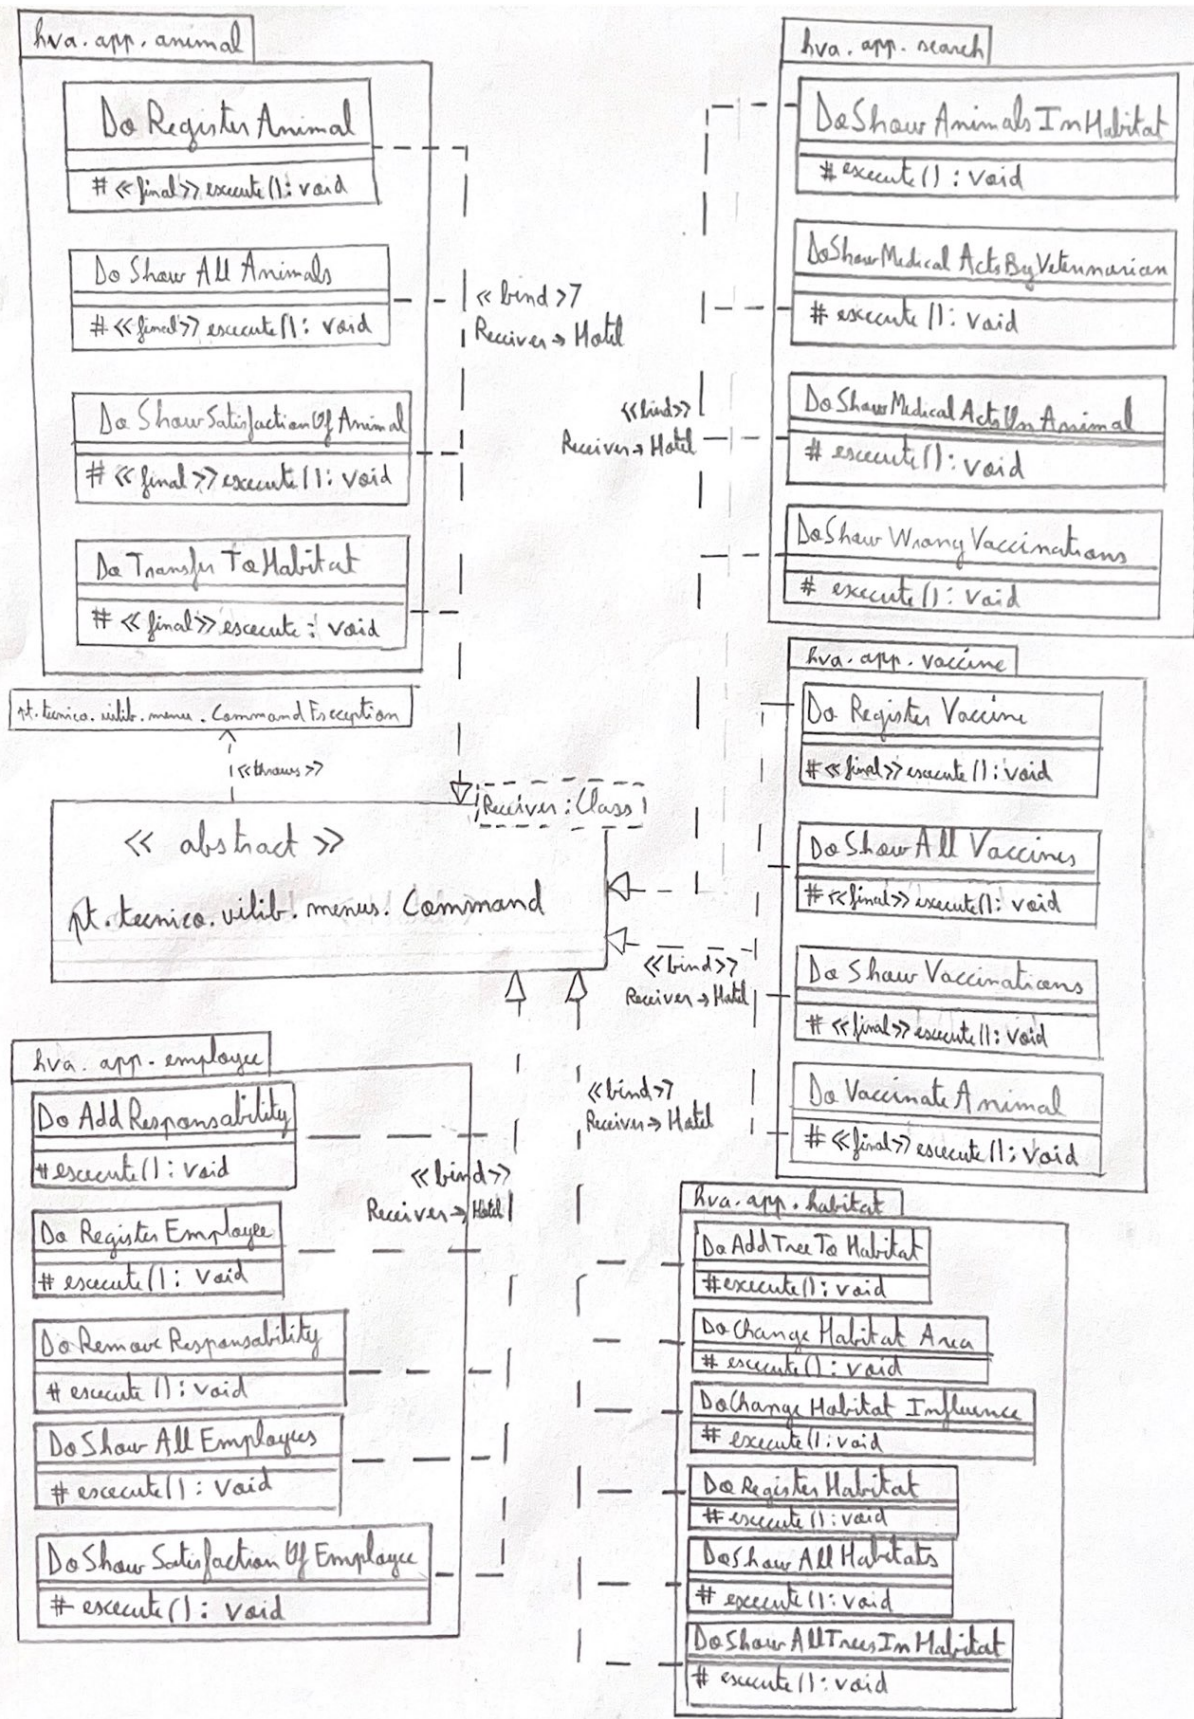 hva.app.animal
Do Register Animal
# <<final>> execute(): void
Do Show All Animals
# <<final>> execute(): void
Do Show Satisfaction Of Animal
# <<final>> execute(): void
Do Transfer To Habitat
# <<final>> execute: void
<<bind>>
Receiver → Hotel
hva.app.search
DoShow Animals In Habitat
# execute(): void
DoShowMedical ActsByVeterinarian
# execute(): void
DoShowMedical ActsOnAnimal
# execute(): void
DoShow Wrong Vaccinations
# execute(): void
<<bind>>
Receiver → Hotel
pt.tecnico.uilib.menus.CommandException
<<throws>>
Receiver: Class
<<abstract>>
pt.tecnico.uilib.menus.Command
hva.app.vaccine
Do Register Vaccine
# <<final>> execute(): void
Do Show All Vaccines
# <<final>> execute(): void
Do Show Vaccinations
# <<final>> execute(): void
Do Vaccinate Animal
# <<final>> execute(): void
<<bind>>
Receiver → Hotel
hva.app.employee
Do Add Responsability
# execute(): void
Do Register Employee
# execute(): void
Do Remove Responsability
# execute(): void
Do Show All Employees
# execute(): void
Do Show Satisfaction Of Employee
# execute(): void
<<bind>>
Receiver → Hotel
<<bind>>
Receiver → Hotel
hva.app.habitat
Do AddTree To Habitat
# execute(): void
Do Change Habitat Area
# execute(): void
DoChange Habitat Influence
# execute(): void
Do Register Habitat
# execute(): void
DoShow All Habitats
# execute(): void
DoShow AllTreesIn Habitat
# execute(): void